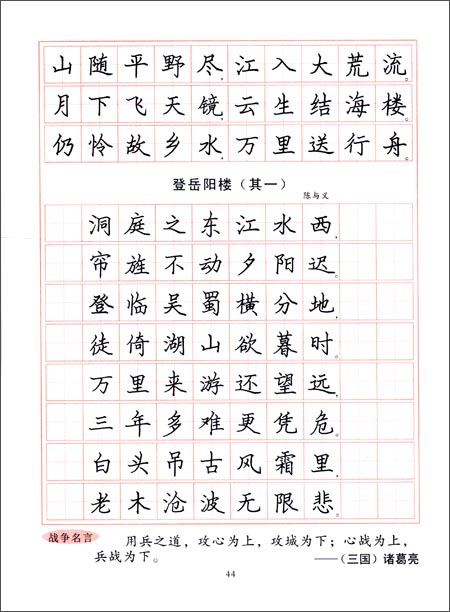 山随平野尽，江入大荒流。
月下飞天镜，云生结海楼。
仍怜故乡水，万里送行舟。
登岳阳楼（其一）
陈与义
洞庭之东江水西，
帘旌不动夕阳迟。
登临吴蜀横分地，
徒倚湖山欲暮时。
万里来游还望远，
三年多难更凭危。
白头吊古风霜里，
老木沧波无限悲。
战争名言
用兵之道，攻心为上，攻城为下；心战为上，
兵战为下。
——（三国）诸葛亮
44